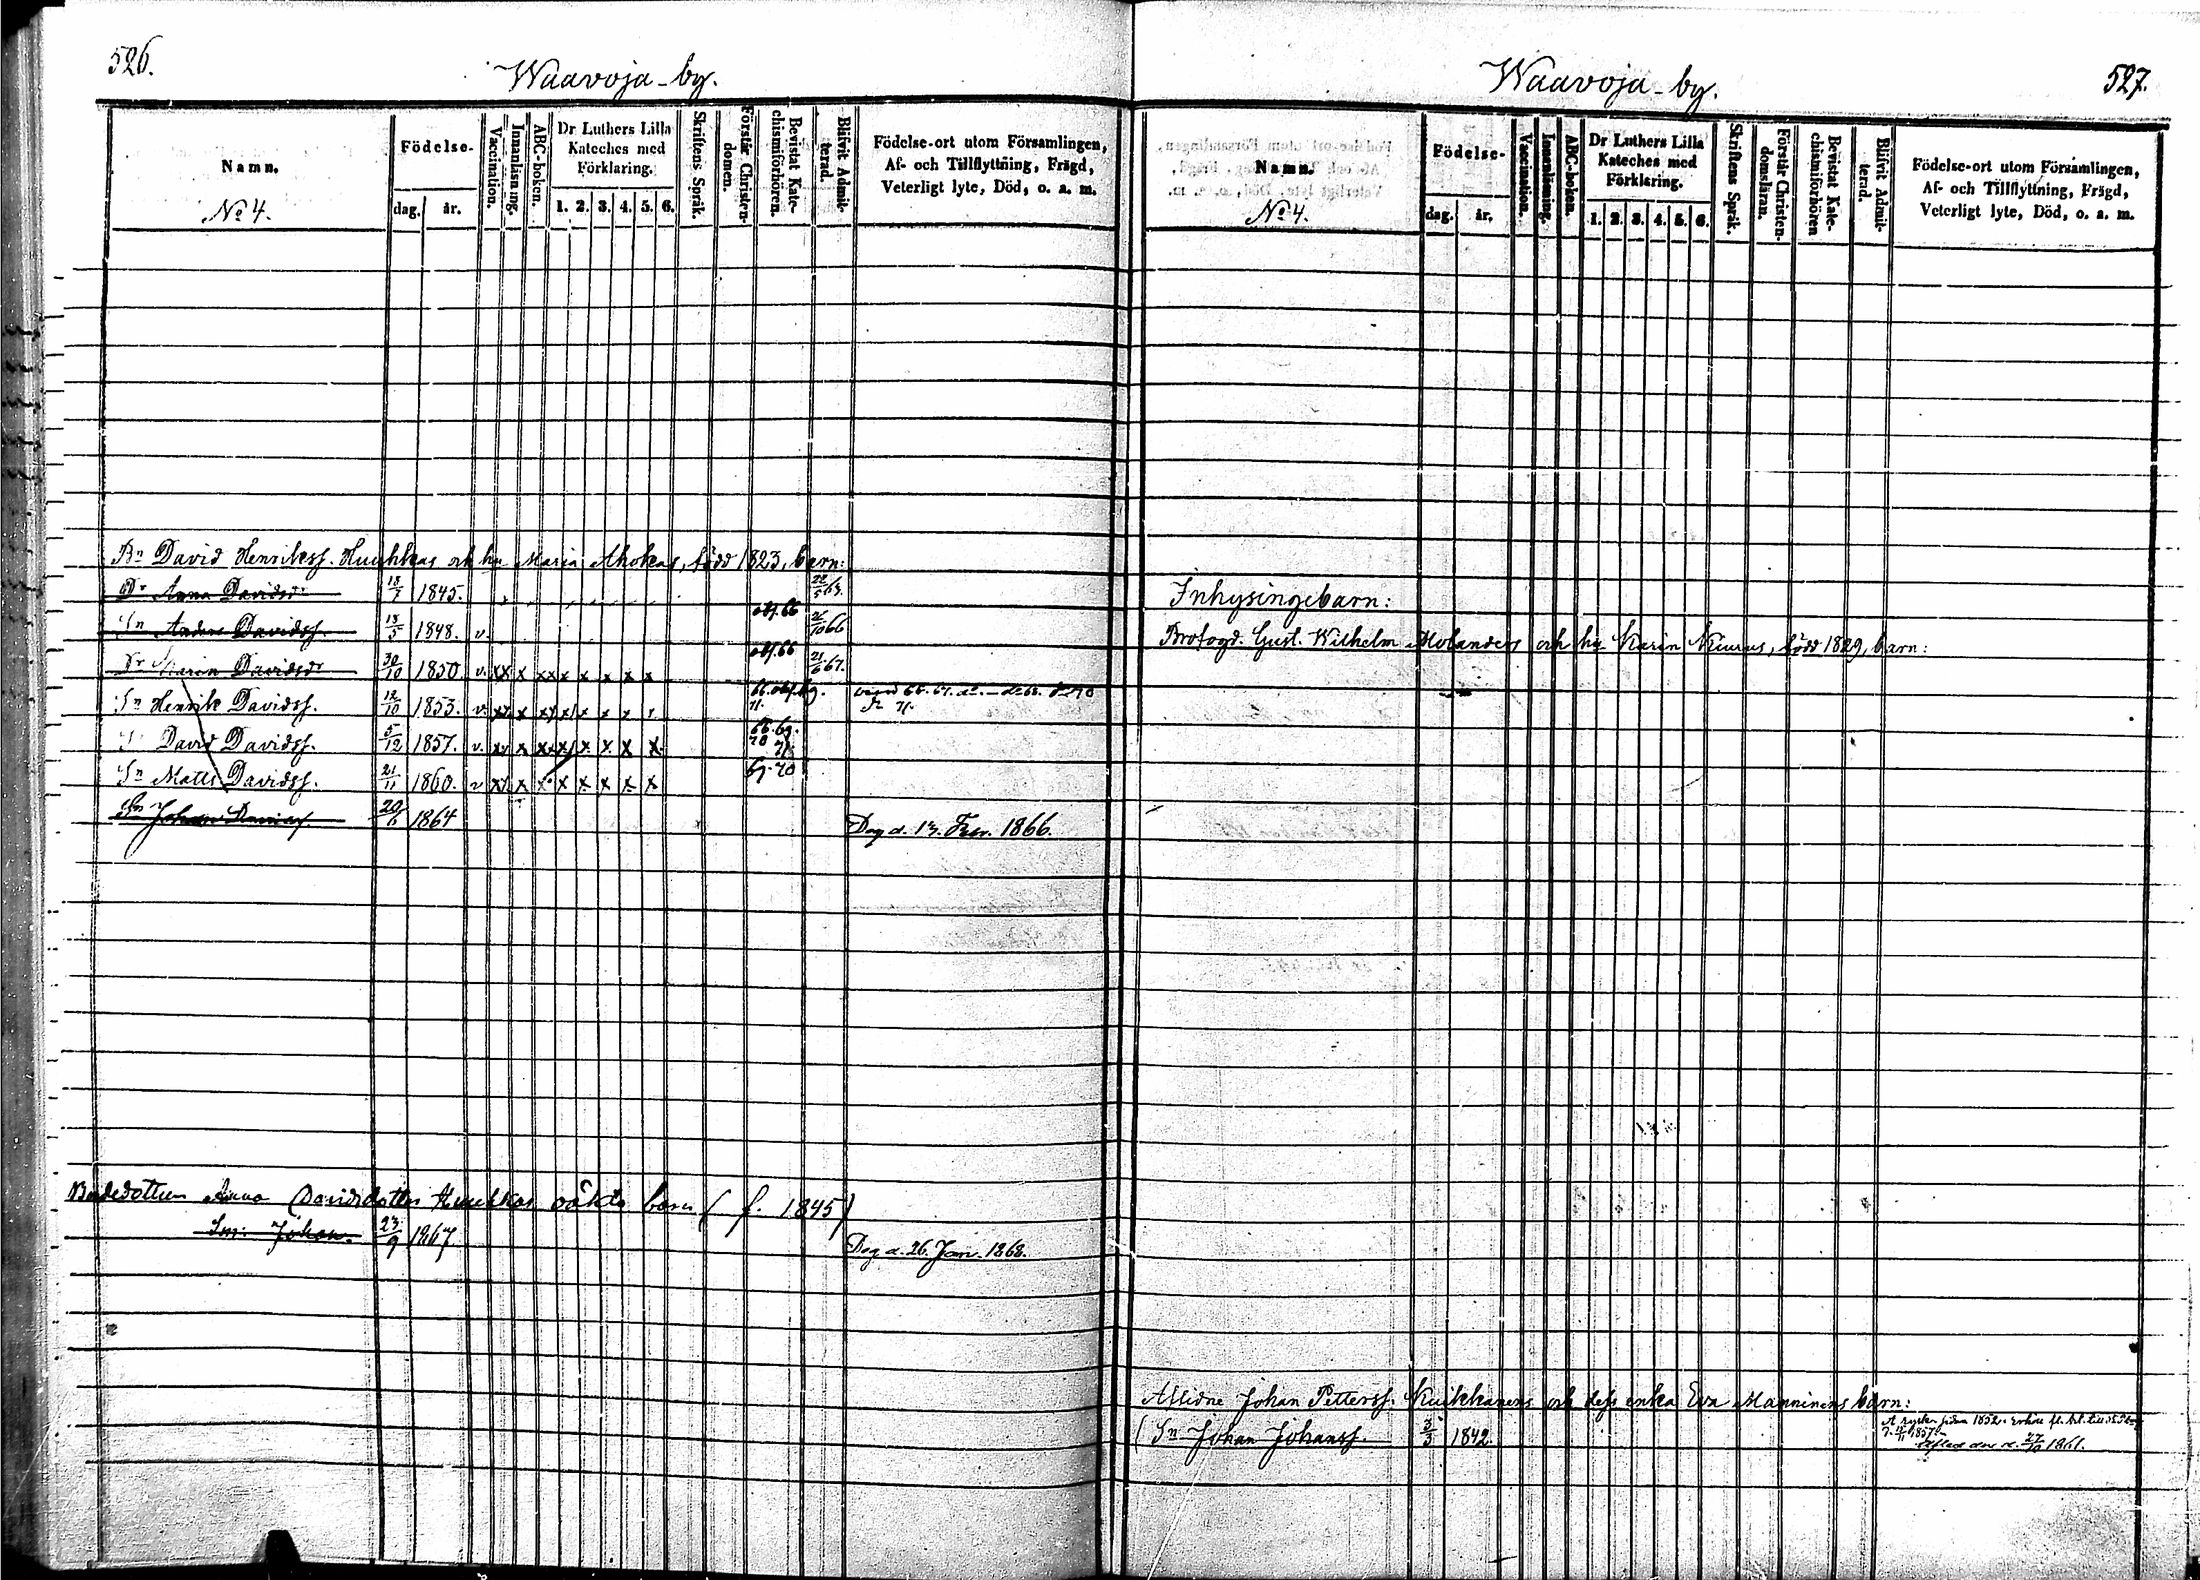 526.
Waavoja-by.
Namn.
No 4.
Födelse-
dag. år.
Vaccination.
Innanläsning.
ABC-boken.
Dr Luthers Lilla Kateches med Förklaring.
1. 2. 3. 4. 5. 6.
Skriftens Språk.
Förstår Christendomen.
Bevistat Katechismiförhören.
Blifvit Admitterad.
Födelse-ort utom Församlingen,
Af- och Tillflyttning, Frägd,
Veterligt lyte, Död, o. a. m.
Bn David Henrikss. Huuhkas och hu Maria Ahokas, född 1823, barn:
Dr Anna Davidsdr 18/7 1845. 22/5 63.
Sn Anders Davidss. 18/5 1848. v. obs. 66 21/10 66
Dr Maria Davidsdr 30/10 1850. v. xx x xx x x x x x obs. 66 21/6 67.
Sn Henrik Davidss. 12/10 1853. v. 66. obs. 69. 71.
David Davidss. 5/12 1857. v. 68. 69. 70 71.
Sn Matts Davidss. 21/11 1860. v 69. 70
Sn Johan Davidss. 20/6 1864 Dog d. 13. Febr. 1866.
Bondedottern Anna Davidsdotter Huuhkas oäkta barn (f. 1845)
Son: Johan. 23/9 1867. Dog d. 26. Jan. 1868.
Waavoja-by.
527.
Namn.
No 4.
Födelse-
dag. år.
Vaccination.
Innanläsning.
ABC-boken.
Dr Luthers Lilla Kateches med Förklaring.
1. 2. 3. 4. 5. 6.
Skriftens Språk.
Förstår Christendomsläran.
Bevistat Katechismiförhören
Blifvit Admitterad.
Födelse-ort utom Församlingen,
Af- och Tillflyttning, Frägd,
Veterligt lyte, Död, o. a. m.
Inhysingebarn:
Brofogd. Gust. Wilhelm Molanders och hu Karin Kiurus, född 1829, barn:
Aflidne Johan Petterss. Kuikkanens och dess enka Eva Manninens barn:
(Sn Johan Johanss. 3/3 1842.
1861.